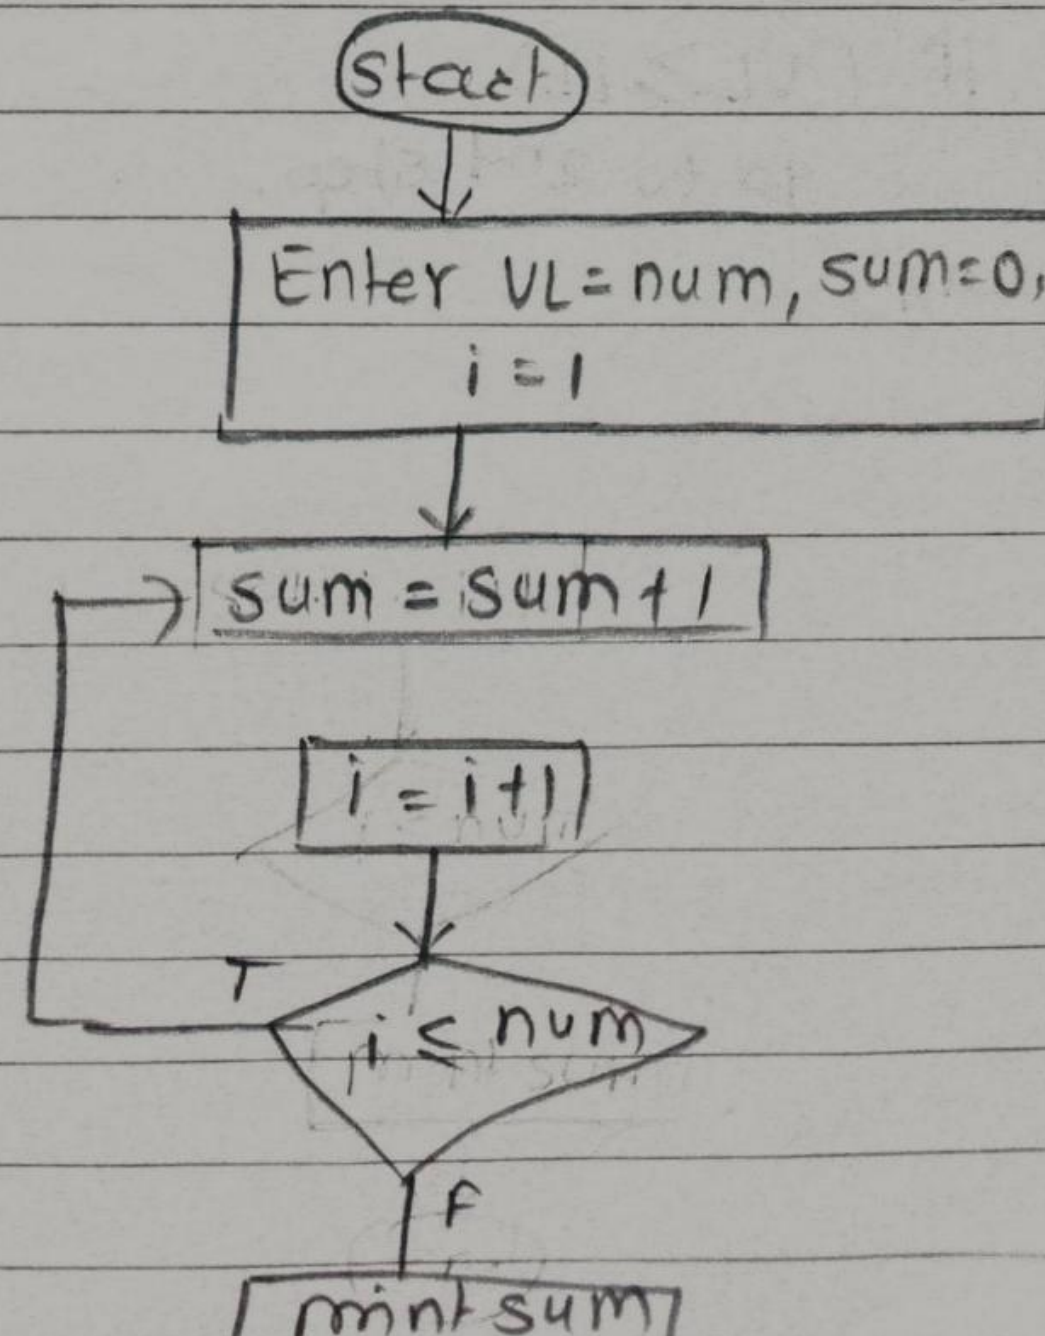 start
Enter VL=num, sum=0,
i = 1
sum = sum + 1
i = i+1
T
i ≤ num
F
print sum